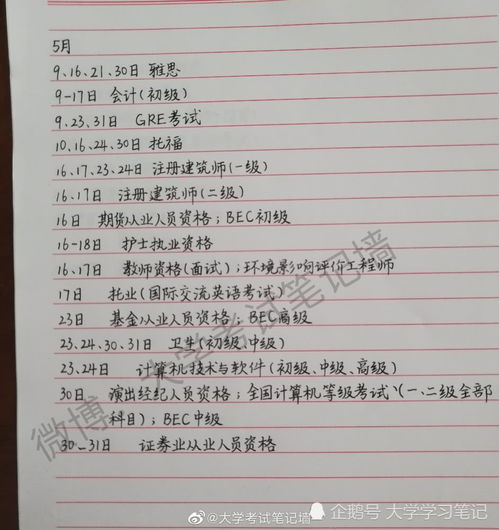 5月
9、16、21、30日 雅思
9-17日 会计(初级)
9、23、31日 GRE考试
10、16、24、30日 托福
16、17、23、24日 注册建筑师(一级)
16、17日 注册建筑师(二级)
16日 期货从业人员资格；BEC初级
16-18日 护士执业资格
16、17日 教师资格(面试)；环境影响评价工程师
17日 托业(国际交流英语考试)
23日 基金从业人员资格；BEC高级
23、24、30、31日 卫生(初级、中级)
23、24日 计算机技术与软件(初级、中级、高级)
30日 演出经纪人员资格；全国计算机等级考试(一、二级全部
科目)；BEC中级
30-31日 证券业从业人员资格
微博：大学考试笔记墙
@大学考试笔记墙
企鹅号 大学学习笔记